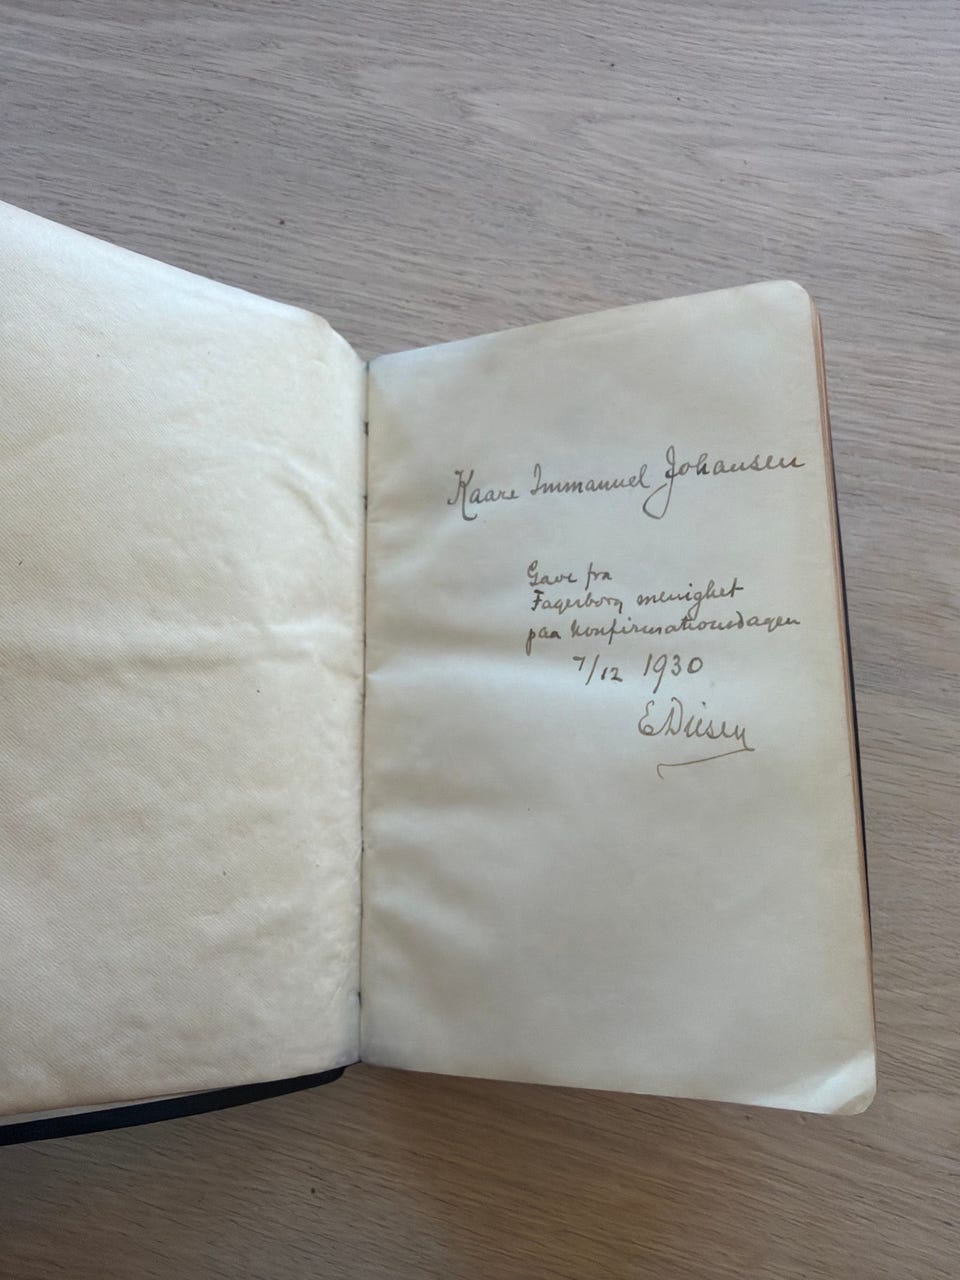 Kaare Immanuel Johansen
Gave fra
Fagerborg menighet
paa konfirmationsdagen
7/12 1930
E Diesen